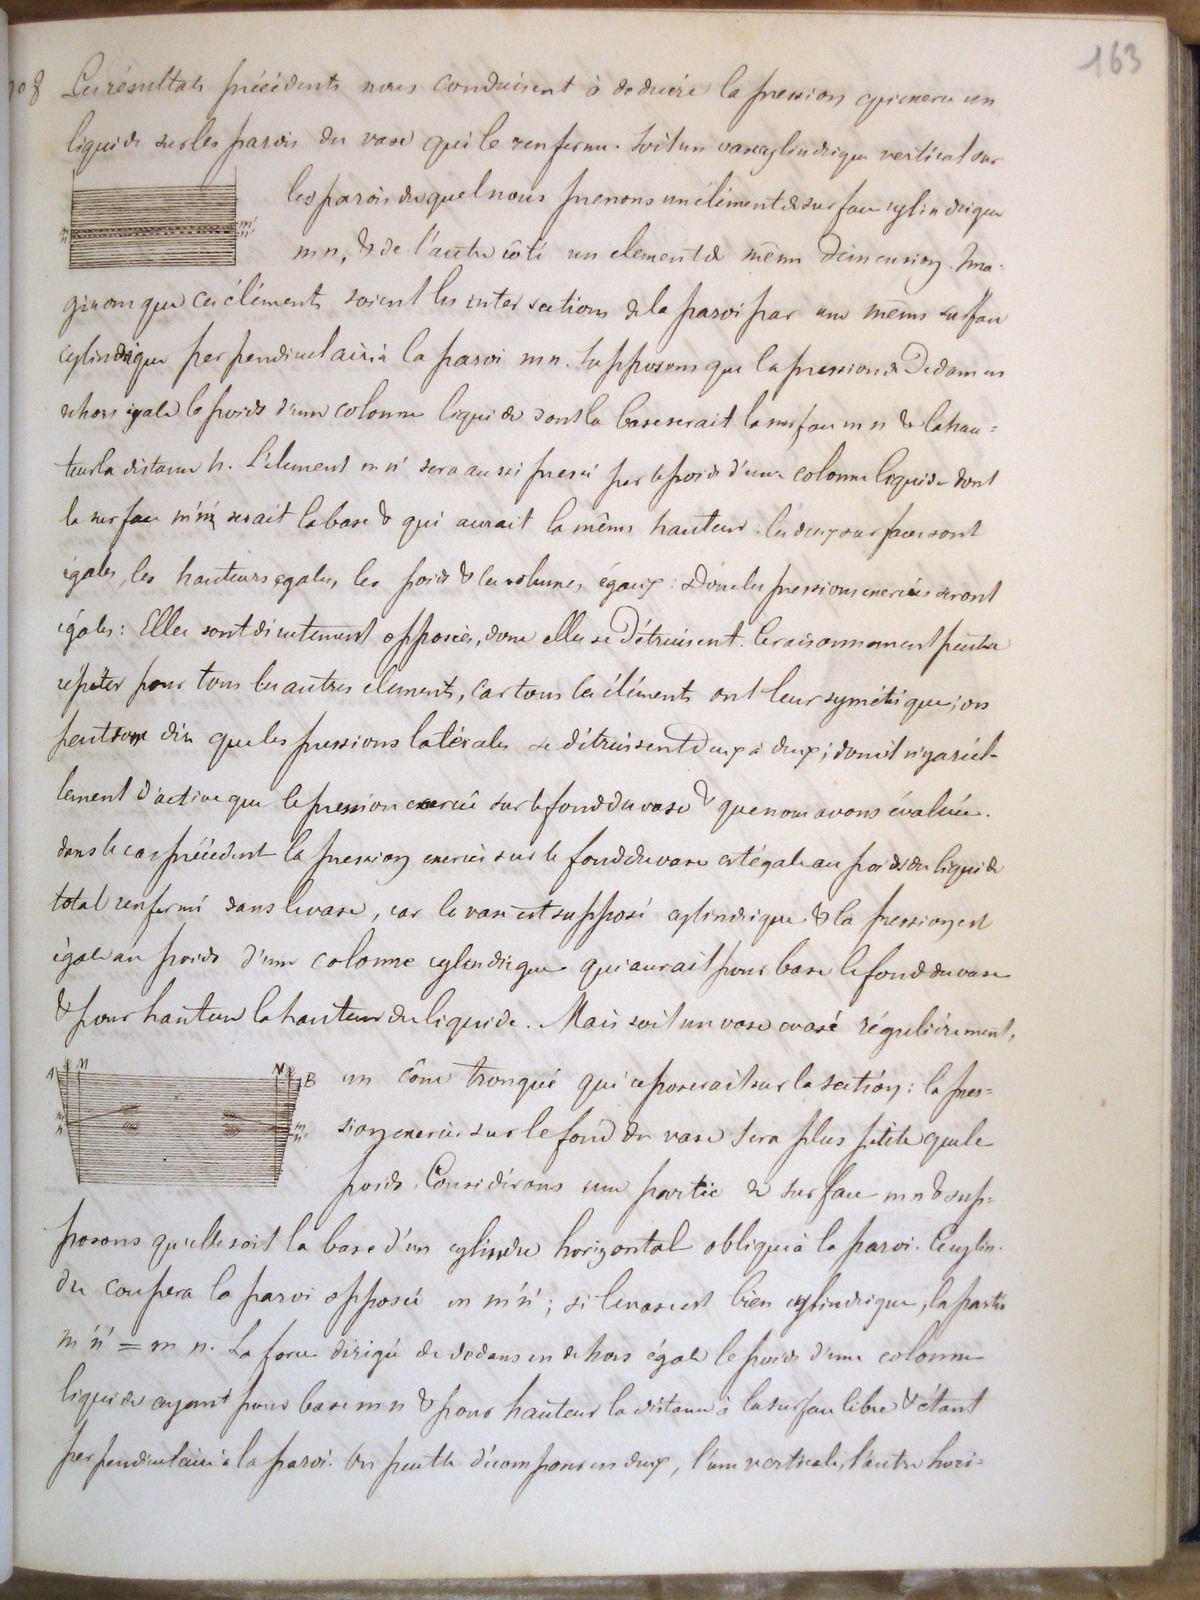 163
108 Les résultats précédents nous conduisent à deduire la pression qu'exerce un
liquide sur les parois du vase qui le renferme. Soit un vase cylindrique vertical sur
les parois duquel nous prenons un élément de surface cylindrique
mn, & de l'autre côté un element de même dimension. Ima-
m n m' n'
ginons que ces éléments soient les intersections de la paroi par une même surface
cylindrique perpendiculaire à la paroi mn. Supposons que la pression de dedans en
dehors égale le poids d'une colonne liquide dont la base serait la surface mn & la hau-
teur la distance h. L'élément m'n' sera aussi pressé par le poids d'une colonne liquide dont
la surface m'n' serait la base & qui aurait la même hauteur. les deux surfaces sont
égales, les hauteurs egales, les poids & les volumes égaux : Donc les pressions exercées seront
égales : Elles sont directement opposées, donc elles se détruisent. Ce raisonnement peut se
répéter pour tous les autres elements, car tous les éléments ont leur symétrique ; on
peut donc dire que les pressions latérales se détruisent deux à deux ; donc il n'y a réel-
lement d'active que la pression exercée sur le fond du vase & que nous avons évaluée.
dans le cas précédent la pression exercée sur le fond du vase est égale au poids du liquide
total renfermé dans le vase, car le vase est supposé cylindrique & la pression est
égale au poids d'une colonne cylindrique qui aurait pour base le fond du vase
& pour hauteur la hauteur du liquide. Mais soit un vase evasé régulièrement,
A N N B
un cône tronqué qui reposerait sur la section : la pres-
m n m' n'
sion exercée sur le fond du vase sera plus petite que le
poids. Considérons une partie de surface mn & sup-
posons qu'elle soit la base d'un cylindre horizontal oblique à la paroi. Ce cylin-
dre coupera la paroi opposée en m'n' ; si le vase est bien cylindrique, la partie
m'n' = m n. La force dirigée de dedans en dehors égale le poids d'une colonne
liquide ayant pour base mn & pour hauteur la distance à la surface libre & étant
perpendiculaire à la paroi. On peut la décomposer en deux, l'une verticale, l'autre hori-